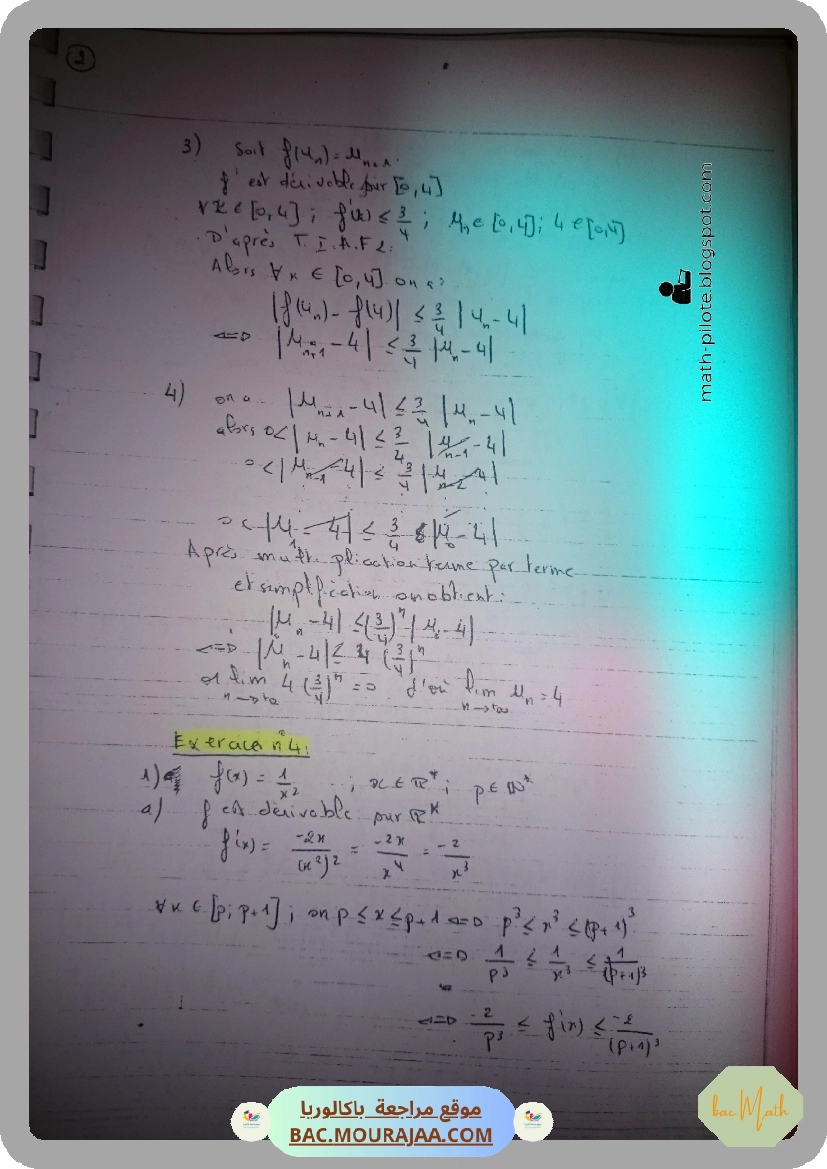 2
3) Soit f(u_n) = u_{n+1}.
f est dérivable sur [0,4]
∀x ∈ [0,4] ; f'(x) ≤ 3/4 ; u_n ∈ [0,4] ; 4 ∈ [0,4]
D'après T.I.A.F 2.
Alors ∀x ∈ [0,4] on a:
|f(u_n) - f(4)| ≤ 3/4 |u_n - 4|
<=> |u_{n+1} - 4| ≤ 3/4 |u_n - 4|
4) on a |u_{n+1} - 4| ≤ 3/4 |u_n - 4|
alors 0 < |u_n - 4| ≤ 3/4 |u_{n-1} - 4|
0 < |u_{n-1} - 4| ≤ 3/4 |u_{n-2} - 4|
0 < |u_1 - 4| ≤ 3/4 |u_0 - 4|
Après multiplication terme par terme
et simplification on obtient:
|u_n - 4| ≤ (3/4)^n |u_0 - 4|
<=> |u_n - 4| ≤ 4 (3/4)^n
or lim_{n→+∞} 4 (3/4)^n = 0 d'où lim_{n→+∞} u_n = 4
Exercice n°4:
1) f(x) = 1/x² ; x ∈ ℝ* ; p ∈ ℕ*
a) f est dérivable sur ℝ*
f'(x) = -2x/(x²)² = -2x/x⁴ = -2/x³
∀x ∈ [p; p+1] ; on p ≤ x ≤ p+1 <=> p³ ≤ x³ ≤ (p+1)³
<=> 1/p³ ≤ 1/x³ ≤ 1/(p+1)³
<=> -2/p³ ≤ f'(x) ≤ -2/(p+1)³
math-pilote.blogspot.com
موقع مراجعة باكالوريا
BAC.MOURAJAA.COM
bac Math